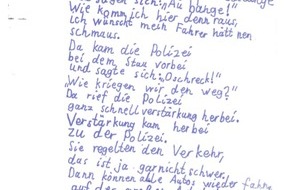 sagen sich: „Au bange!"
Wie komm ich hier denn raus,
ich wünscht mein Fahrer hätt nen
schmaus.
Da kam die Polizei
bei dem Stau vorbei
und sagte sich: „Oschreck!"
„Wie kriegen wir den weg?"
Da rief die Polizei
ganz schnell verstärkung herbei.
Verstärkung kam herbei
zu der Polizei.
Sie regelten den Verkehr,
das ist ja garnicht schwer.
Dann können alle Autos wieder fahre
auf der